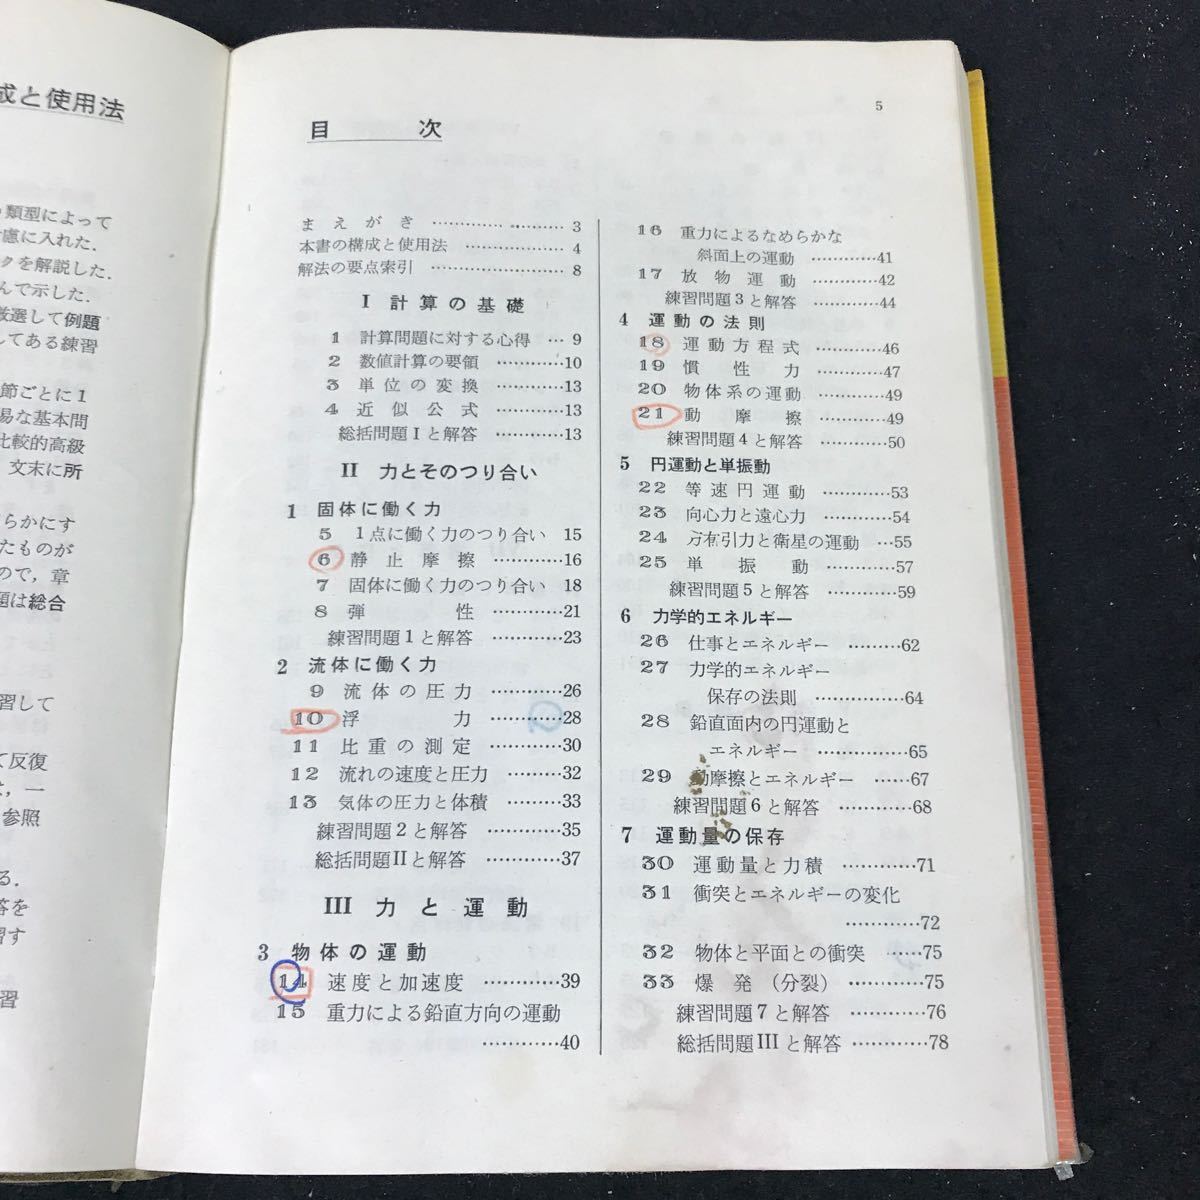 成と使用法
類型によって
慮に入れた.
クを解説した.
んで示した.
厳選して例題
してある練習
節ごとに1
易な基本問
比較的高級
文末に所
らかにす
たものが
ので，章
題は総合
習して
て反復
は，一
参照
る.
答を
習す
習
5
目次
まえがき …………………… 3
本書の構成と使用法 …………… 4
解法の要点索引 ……………… 8
I 計算の基礎
1 計算問題に対する心得 … 9
2 数値計算の要領 …………10
3 単位の変換 …………13
4 近似公式 …………13
総括問題Iと解答 …………13
II 力とそのつり合い
1 固体に働く力
5 1点に働く力のつり合い 15
6 静止摩擦 …………16
7 固体に働く力のつり合い 18
8 弾性 …………21
練習問題1と解答 …………23
2 流体に働く力
9 流体の圧力 …………26
10 浮力 …………28
11 比重の測定 …………30
12 流れの速度と圧力 …………32
13 気体の圧力と体積 …………33
練習問題2と解答 …………35
総括問題IIと解答 …………37
III 力と運動
3 物体の運動
14 速度と加速度 …………39
15 重力による鉛直方向の運動
…………40
16 重力によるなめらかな
斜面上の運動 …………41
17 放物運動 …………42
練習問題3と解答 …………44
4 運動の法則
18 運動方程式 …………46
19 慣性力 …………47
20 物体系の運動 …………49
21 動摩擦 …………49
練習問題4と解答 …………50
5 円運動と単振動
22 等速円運動 …………53
23 向心力と遠心力 …………54
24 万有引力と衛星の運動 …55
25 単振動 …………57
練習問題5と解答 …………59
6 力学的エネルギー
26 仕事とエネルギー ………62
27 力学的エネルギー
保存の法則 …………64
28 鉛直面内の円運動と
エネルギー …………65
29 動摩擦とエネルギー ……67
練習問題6と解答 …………68
7 運動量の保存
30 運動量と力積 …………71
31 衝突とエネルギーの変化
…………72
32 物体と平面との衝突 ……75
33 爆発（分裂） …………75
練習問題7と解答 …………76
総括問題IIIと解答 …………78